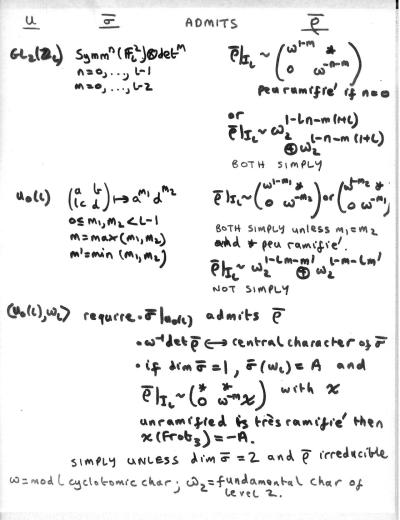 U σ̄ ADMITS ρ̄
GL₂(ℤ_ℓ) Symmⁿ(F̄_ℓ²)⊗det^m ρ̄|I_ℓ ~ (ω^{1-m} * / 0 ω^{-n-m})
n=0,..., ℓ-1
m=0,..., ℓ-2
peu ramifié if n=0
or
ρ̄|I_ℓ ~ ω₂^{1-ℓn-m(1+ℓ)} ⊕ ω₂^{ℓ-n-m(1+ℓ)}
BOTH SIMPLY
U₀(ℓ) (a b / ℓc d) ↦ a^{m₁} d^{m₂} ρ̄|I_ℓ ~ (ω^{1-m₁} * / 0 ω^{-m₂}) or (ω^{1-m₂} * / 0 ω^{-m₁})
0≤m₁,m₂<ℓ-1
m=max(m₁,m₂)
m'=min(m₁,m₂)
BOTH SIMPLY UNLESS m₁=m₂
and * peu ramifié.
ρ̄|I_ℓ ~ ω₂^{1-ℓm-m'} ⊕ ω₂^{ℓ-m-ℓm'}
NOT SIMPLY
(U₀(ℓ),ω_ℓ) require • σ̄|U₀(ℓ) admits ρ̄
• ω⁻¹det ρ̄ ↔ central character of σ̄
• if dim σ̄ =1, σ̄(ω_ℓ)=A and
ρ̄|I_ℓ ~ (* * / 0 ω^{-m}χ) with χ
unramified is très ramifié then
χ(Frob₃)=-A.
SIMPLY UNLESS dim σ̄ =2 and ρ̄ irreducible
ω=mod ℓ cyclotomic char; ω₂=fundamental char of
level 2.